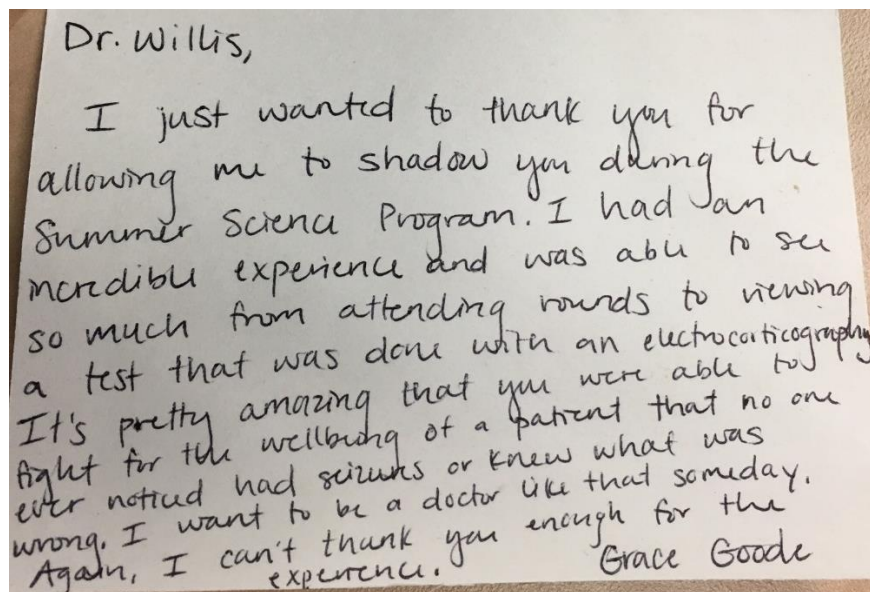 Dr. Willis,
I just wanted to thank you for
allowing me to shadow you during the
Summer Science Program. I had an
incredible experience and was able to see
so much from attending rounds to viewing
a test that was done with an electrocorticography
It's pretty amazing that you were able to
fight for the wellbeing of a patient that no one
ever noticed had seizures or knew what was
wrong. I want to be a doctor like that someday.
Again, I can't thank you enough for the
experience. Grace Goode